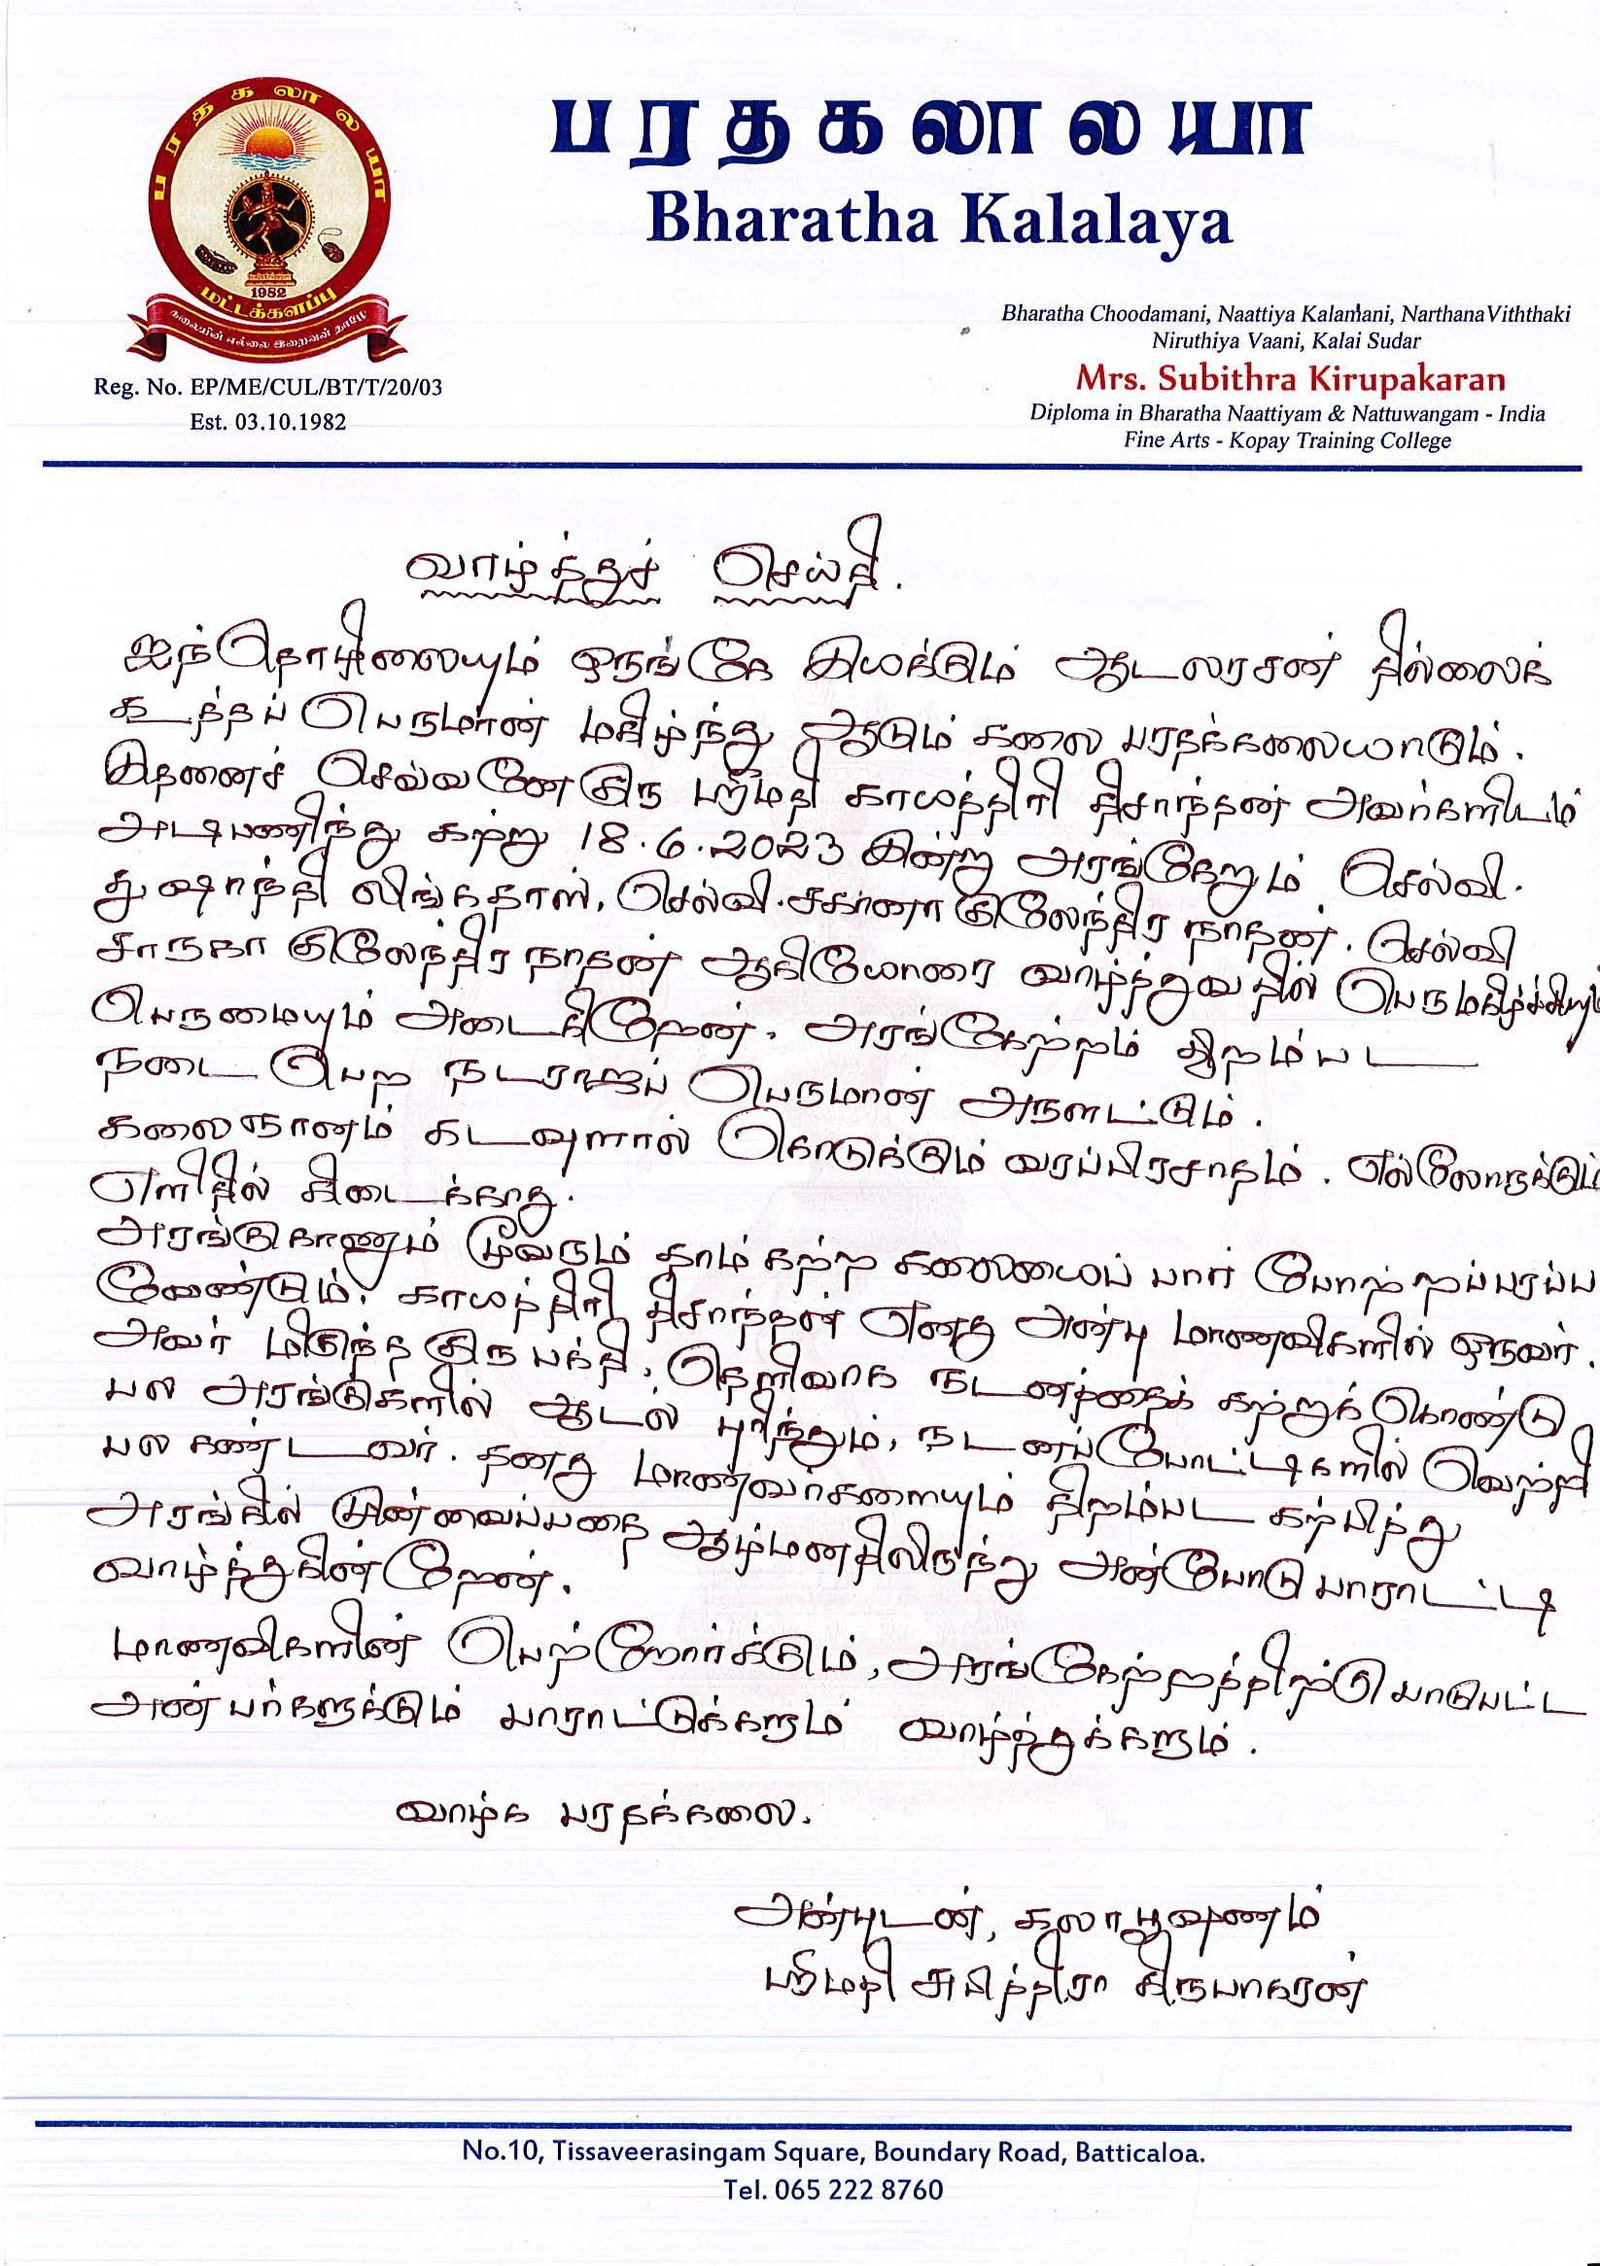 பரதகலாலயா
பரதகலாலயா
Bharatha Kalalaya
1982
மட்டக்களப்பு
கலையின் எல்லை இறைவன் தாளே
Reg. No. EP/ME/CUL/BT/T/20/03
Est. 03.10.1982
Bharatha Choodamani, Naattiya Kalamani, Narthana Viththaki
Niruthiya Vaani, Kalai Sudar
Mrs. Subithra Kirupakaran
Diploma in Bharatha Naattiyam & Nattuwangam - India
Fine Arts - Kopay Training College
வாழ்த்துச் செய்தி.
ஐந்தொழிலையும் ஒருங்கே இயக்கும் ஆடலரசன் தில்லைக்
கூத்தப் பெருமான் மகிழ்ந்து ஆடும் கலை பரதக்கலையாகும்.
இதனைச் செவ்வனே குரு ஸ்ரீமதி காயத்திரி திசாந்தன் அவர்களிடம்
அடிபணிந்து கற்று 18.6.2023 இன்று அரங்கேறும் செல்வி.
துஷாந்தி லிங்கதாஸ், செல்வி. சகானா குலேந்திர நாதன். செல்வி
சாருகா குலேந்திர நாதன் ஆகியோரை வாழ்த்துவதில் பெருமகிழ்ச்சியும்
பெருமையும் அடைகிறேன். அரங்கேற்றம் திறம்பட
நடை பெற நடராஜப் பெருமான் அருளட்டும்.
கலைஞானம் கடவுளால் கொடுக்கும் வரப்பிரசாதம். எல்லோருக்கும்
எளிதில் கிடைக்காது.
அரங்குகாணும் மூவரும் தாம் கற்ற கலையைப் பார் போற்றப்பரப்ப
வேண்டும். காயத்திரி திசாந்தன் எனது அன்பு மாணவிகளில் ஒருவர்.
அவர் மிகுந்த குரு பக்தி, தெளிவாக நடனத்தைக் கற்றுக் கொண்டு
பல அரங்குகளில் ஆடல் புரிந்தும், நடனப்போட்டிகளில் வெற்றி
பல கண்டவர். தனது மாணவர்களையும் திறம்பட கற்பித்து
அரங்கில் முன்வைப்பதை ஆழ்மனதிலிருந்து அன்போடு பாராட்டி
வாழ்த்துகின்றேன்.
மாணவிகளின் பெற்றோர்க்கும், அரங்கேற்றத்திற்கு பாடுபட்ட
அன்பர்களுக்கும் பாராட்டுக்களும் வாழ்த்துக்களும்.
வாழ்க பரதக்கலை.
அன்புடன், கலாபூஷணம்
ஸ்ரீமதி சுபித்திரா கிருபாகரன்
No.10, Tissaveerasingam Square, Boundary Road, Batticaloa.
Tel. 065 222 8760